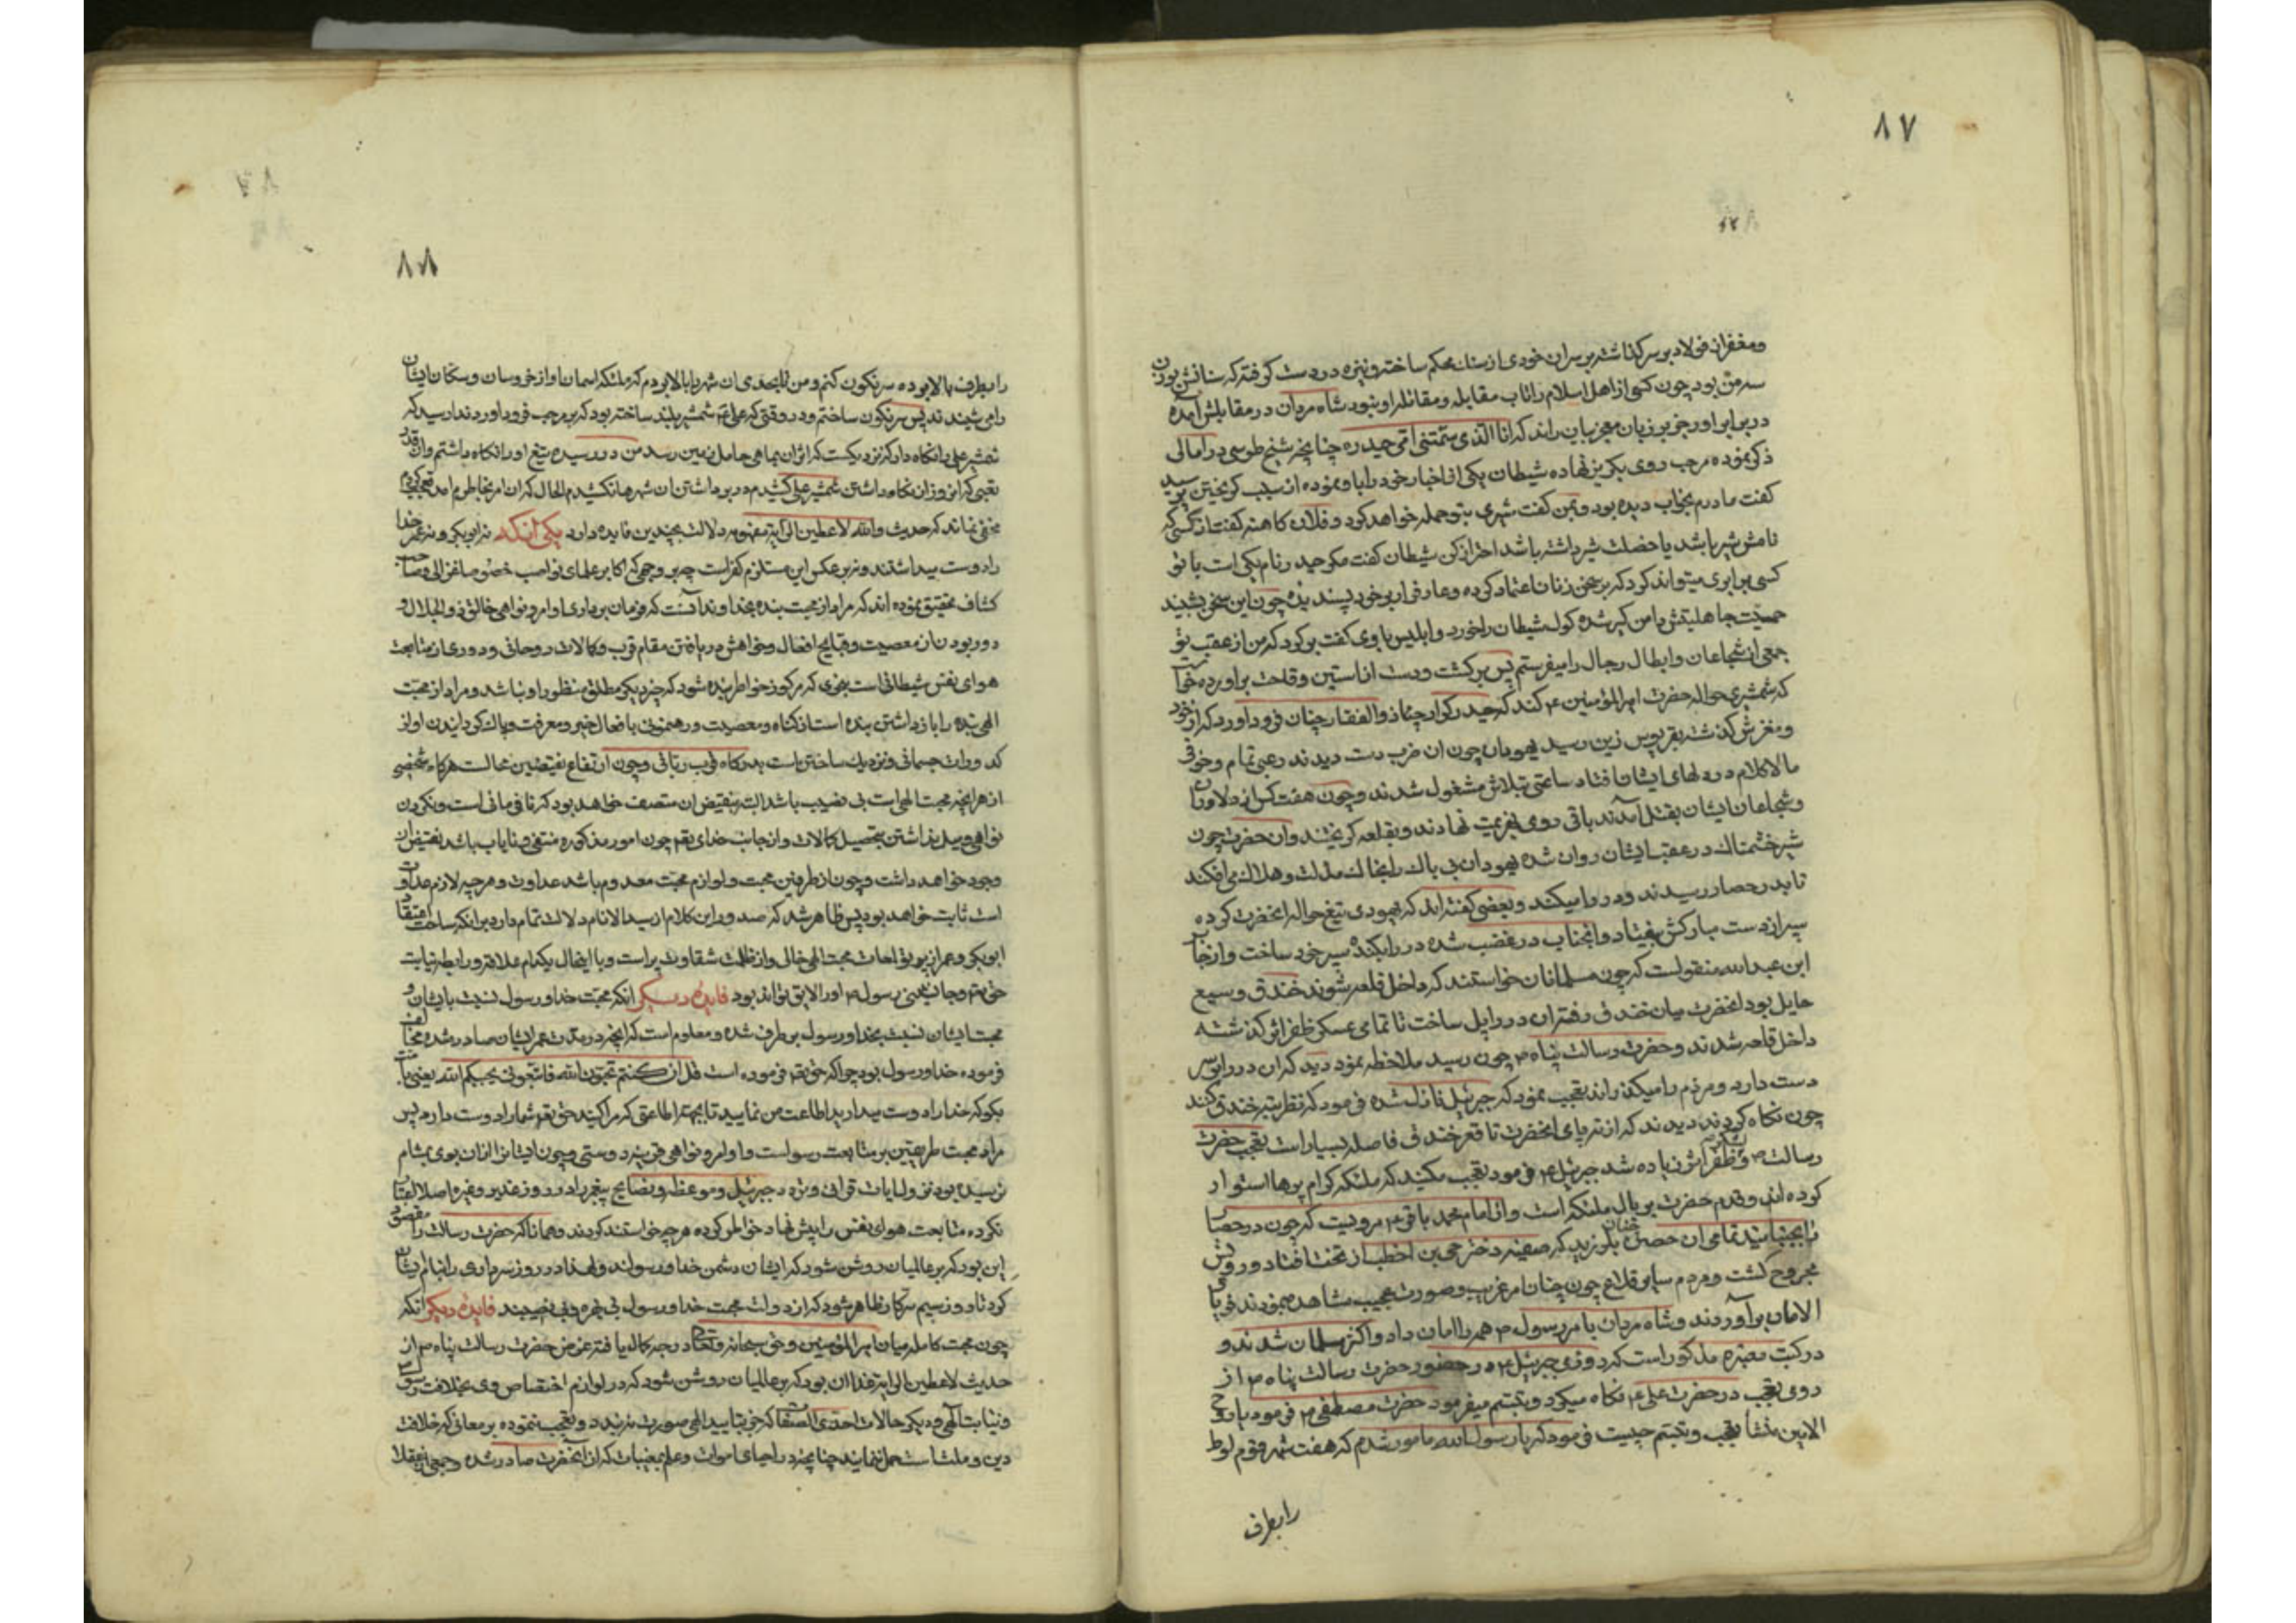 ٨٧
ومغفر از فولاد بر سر گذاشته بر سر ان خودی از سنک محکم ساخته و نیزه در دست گرفته که سنانش بوزن
سه من بود چون کسی از اهل اسلام را تاب مقابله و مقاتله او نبود شاه مردان در مقابلش آمده
در برابر او رجز بر زبان معجز بیان راند که انا الذی سمتنی امی حیدره چنانچه شیخ طوسی در امالی
ذکر نموده مرحب روی بگریز نهاده شیطان یکی از احبار خود را باو نموده از سبب گریختن پرسید
گفت مادرم بخواب دیده بود و بمن گفت شیری بتو حمله خواهد کرد و فلان کاهنه گفت از کسی که
نامش شیر باشد یا خصلت شیر داشته باشد احتراز کن شیطان گفت مگر حیدر نام یکی است با تو
کسی برابری میتواند کرد که بر سخن زنان اعتماد کرده و عار فرار بر خود پسندیده چون این سخن بشنید
حمیت جاهلیتش دامن گیر شده گول شیطان را خورد و ابلیس با وی گفت برگرد که من از عقب تو
جمعی از شجاعان و ابطال رجال را میفرستم پس برگشت و دست از استین وقاحت براورده خواست
که شمشیری حواله حضرت امیر المؤمنین ع کند که حیدر کرار چنان ذوالفقار چنان فرود آورد که از خود
و مغزش گذشته بقربوس زین رسید یهودیان چون ان ضرب دست دیدند رعبی تمام و خوفی
مالاکلام در دلهای ایشان افتاد ساعتی بتلاش مشغول شدند و چون هفت کس از دلاوران
و شجاعان ایشان بقتل آمدند باقی روی بهزیمت نهادند و بقلعه گریختند و ان حضرت چون
شیر خشمناک در عقب ایشان روان شده یهودان بی باک را بخاک مذلت و هلاک می افکند
تا بدر حصار رسیدند و در را میکند و بعضی گفته اند که یهودی تیغ حواله انحضرت کرده
سپر از دست مبارکش بیفتاد و انجناب در غضب شده در را بکنده سپر خود ساخت و از جابر
ابن عبدالله منقولست که چون مسلمانان خواستند که داخل قلعه شوند خندق وسیع
حایل بود انحضرت میان خندق رفته ان در را پل ساخت تا تمامی عسکر ظفر اثر گذشته
داخل قلعه شدند و حضرت رسالت پناه ص چون رسید ملاحظه نمود دید که ان در را بر سر
دست دارد و مردم را میگذراند تعجب نمود که جبرئیل نازل شده فرمود که نظر بته خندق کنند
چون نگاه کردند دیدند که از ته پای انحضرت تا قعر خندق فاصله بسیار است تعجب حضرت
رسالت ص و لشکر ظفر اثر زیاده شد جبرئیل ع فرمود تعجب مکنید که ملئکه کرام پرها استوار
کرده اند و قدم حضرت بر بال ملئکه است و از امام محمد باقر ع مرویست که چون در حصار
را بجنبانید تمامی ان حصن چنان بلرزید که صفیه دختر حی بن اخطب از تخت افتاد و رویش
مجروح گشت و مردم سایر قلاع چون چنان امر غریب و صورت عجیب مشاهده نمودند فریاد
الامان برآوردند و شاه مردان بامر رسول ص همه را امان داد و اکثر مسلمان شدند و
در کتب معتبره مذکور است که روزی جبرئیل ع در حضور حضرت رسالت پناه ص از
روی تعجب در حضرت علی ع نگاه میکرد و تبسم میفرمود حضرت مصطفی ص فرمود یا روح
الامین منشأ تعجب و تبسم چیست فرمود که یا رسول الله مامور شدم که هفت شهر قوم لوط
رابطرف
٨٨
رابطرف بالا بوده سرنگون کنم و من تا بحدی ان شهر را بالا بودم که ملئکه اسمان اواز خروسان و سگان ایشان
را می شنیدند پس سرنگون ساختم و در وقتی که علی ع شمشیر بلند ساخته بود که بر مرحب فرود اورد ندا رسید که
شمشیر علی را نگاه دار که نزدیکست که اثر ان بماهی حامل زمین رسد من در رسیده تیغ او را نگاه داشتم و ان قدر
تعبی که امروز از نگاه داشتن شمشیر علی کشیدم در برداشتن ان شهرها نکشیدم الحال که ان امر بخاطرم امد تعجب کردم
مخفی نماند که حدیث والله لاعطین الرایة بمفهومه دلالت بچندین فایده دارد یکی آنکه نه ابوبکر و نه عمر خدا
را دوست میداشتند و نه بر عکس این مستلزم کفر است چه بر وجهی که اکابر علمای نواصب خصوصا فخر الی و صاحب
کشاف تحقیق نموده اند که مراد از محبت بنده بخداوند آنست که فرمان برداری اوامر و نواهی خالق ذوالجلال و
دور بودن از معصیت و قبایح افعال و خواهش دریافتن مقام قرب و کمالات روحانی و دوری از متابعت
هوای نفس شیطانی است بنحوی که مرکوز خواطر بنده شود که چیز دیگر مطلق منظور او نباشد و مراد از محبت
الهی بنده را باز داشتن بنده است از گناه و معصیت و رهنمونی بافعال خیر و معرفت و پاک گردانیدن او از
کدورات جسمانی و نزدیک ساختن باست بدرگاه قرب ربانی و چون ارتفاع نقیضین محالست هرگاه شخصی
از هر انچه محبت الهی است بی نصیب باشد البته بنقیض ان متصف خواهد بود که نافرمانی است و نکردن
نواهی و میل نداشتن بتحصیل کمالات و از جانب خدای تعم چون امور مذکوره منتفی و نایاب باشد نقیض ان
وجود خواهد داشت و چون از طرفین محبت و لوازم محبت معدوم باشد عداوت و هرچه لازم عداوت
است ثابت خواهد بود پس ظاهر شد که صدور این کلام از سید الانام دلالت تمام دارد بر انکه ساحت اعتقاد
ابوبکر و عمر از پرتو لمعات محبت الهی خالی و از ظلمت شقاوت پر است و با اینحال بکدام علاقه و رابطه نیابت
حق تعم و جانشینی رسول ص او را لایق تواند بود فایده دیگر انکه محبت خدا و رسول نسبت بایشان و
محبت ایشان نسبت بخدا و رسول برطرف شده و معلوم است که انچه در مدت عمر ایشان صادر شده مخالف
فرموده خدا و رسول بود چرا که حق تعم فرموده است قل ان کنتم تحبون الله فاتبعونی یحببکم الله یعنی
بگو که خدا را دوست میدارید اطاعت من نمایید تا بجهة اطاعتی که مرا کنید حق تعم شما را دوست دارد پس
مراد محبت طریقین بر متابعت رسولست و اوامر و نواهی و دوستی و چون ایشانرا از ان بوی بمشام
نرسیده بود نزول ایات قرانی و تردد جبرئیل و موعظه و نصایح پیغمبر را در روز غدیر و غیره اصلا التفات
نکرده متابعت هوای نفس را پیش نهاد خواطر کرده هرچه خواستند کردند و همانا که حضرت رسالت را مقصود
این بود که بر عالمیان روشن شود که ایشان دشمن خدا و رسولند ولهذا در روز سرداری را بنام ایشان
کرد تا در روز سیم سرکار ظاهر شود که از دولت محبت خدا و رسول بی بهره و بی نصیبند فایده دیگر انکه
چون محبت کامله میان امیر المؤمنین و حق سبحانه و تعالی درجه کمال یافته غرض حضرت رسالت پناه ص از
حدیث لاعطین الرایة غدا ان بود که بر عالمیان روشن شود که در لوازم اختصاص وی بخلافت رسول
و نیابت الهی و دیگر حالات احدی که جز بتایید الهی صورت نبندد و تعجب ننموده بر معانی که خلاف
دین و ملت است حمل ننمایند چنانچه در احیای اموات و علم بمغیبات که از آنحضرت صادر شده و جمعی